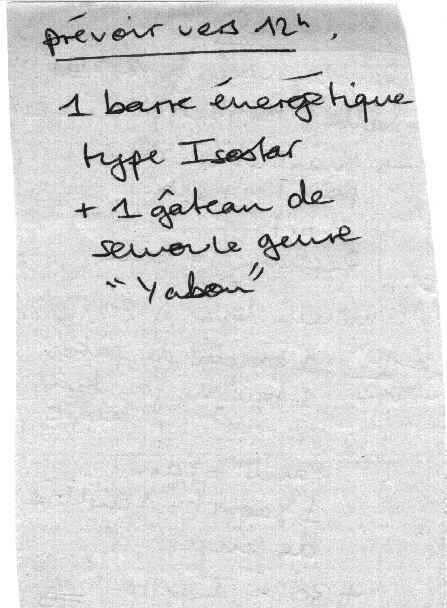 prévoir vers 12h.
1 barre énergétique
type Isostar
+ 1 gâteau de
semoule genre
"Yabon"